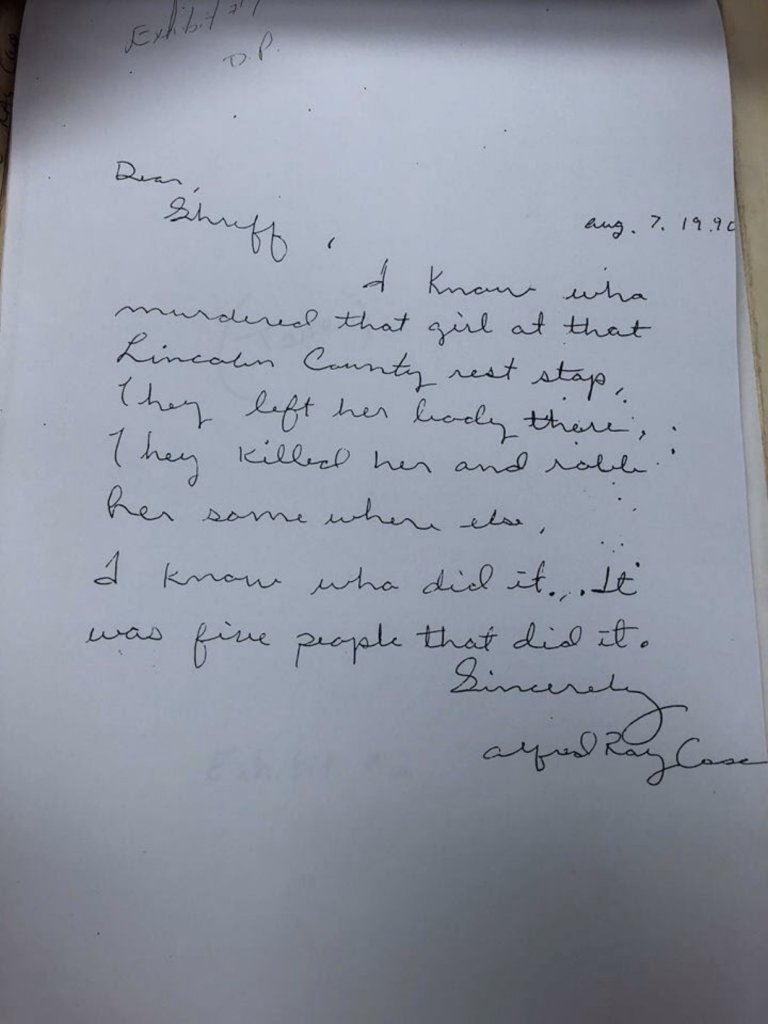 Exhibit #1
D.P.
Dear,
Shriff,
aug. 7. 1990
I know who
murdered that girl at that
Lincoln County rest stop.
They left her body there,
They killed her and robb
her some where else,
I know who did it... It
was five people that did it.
Sincerely
alfred Ray Case
Exhibit